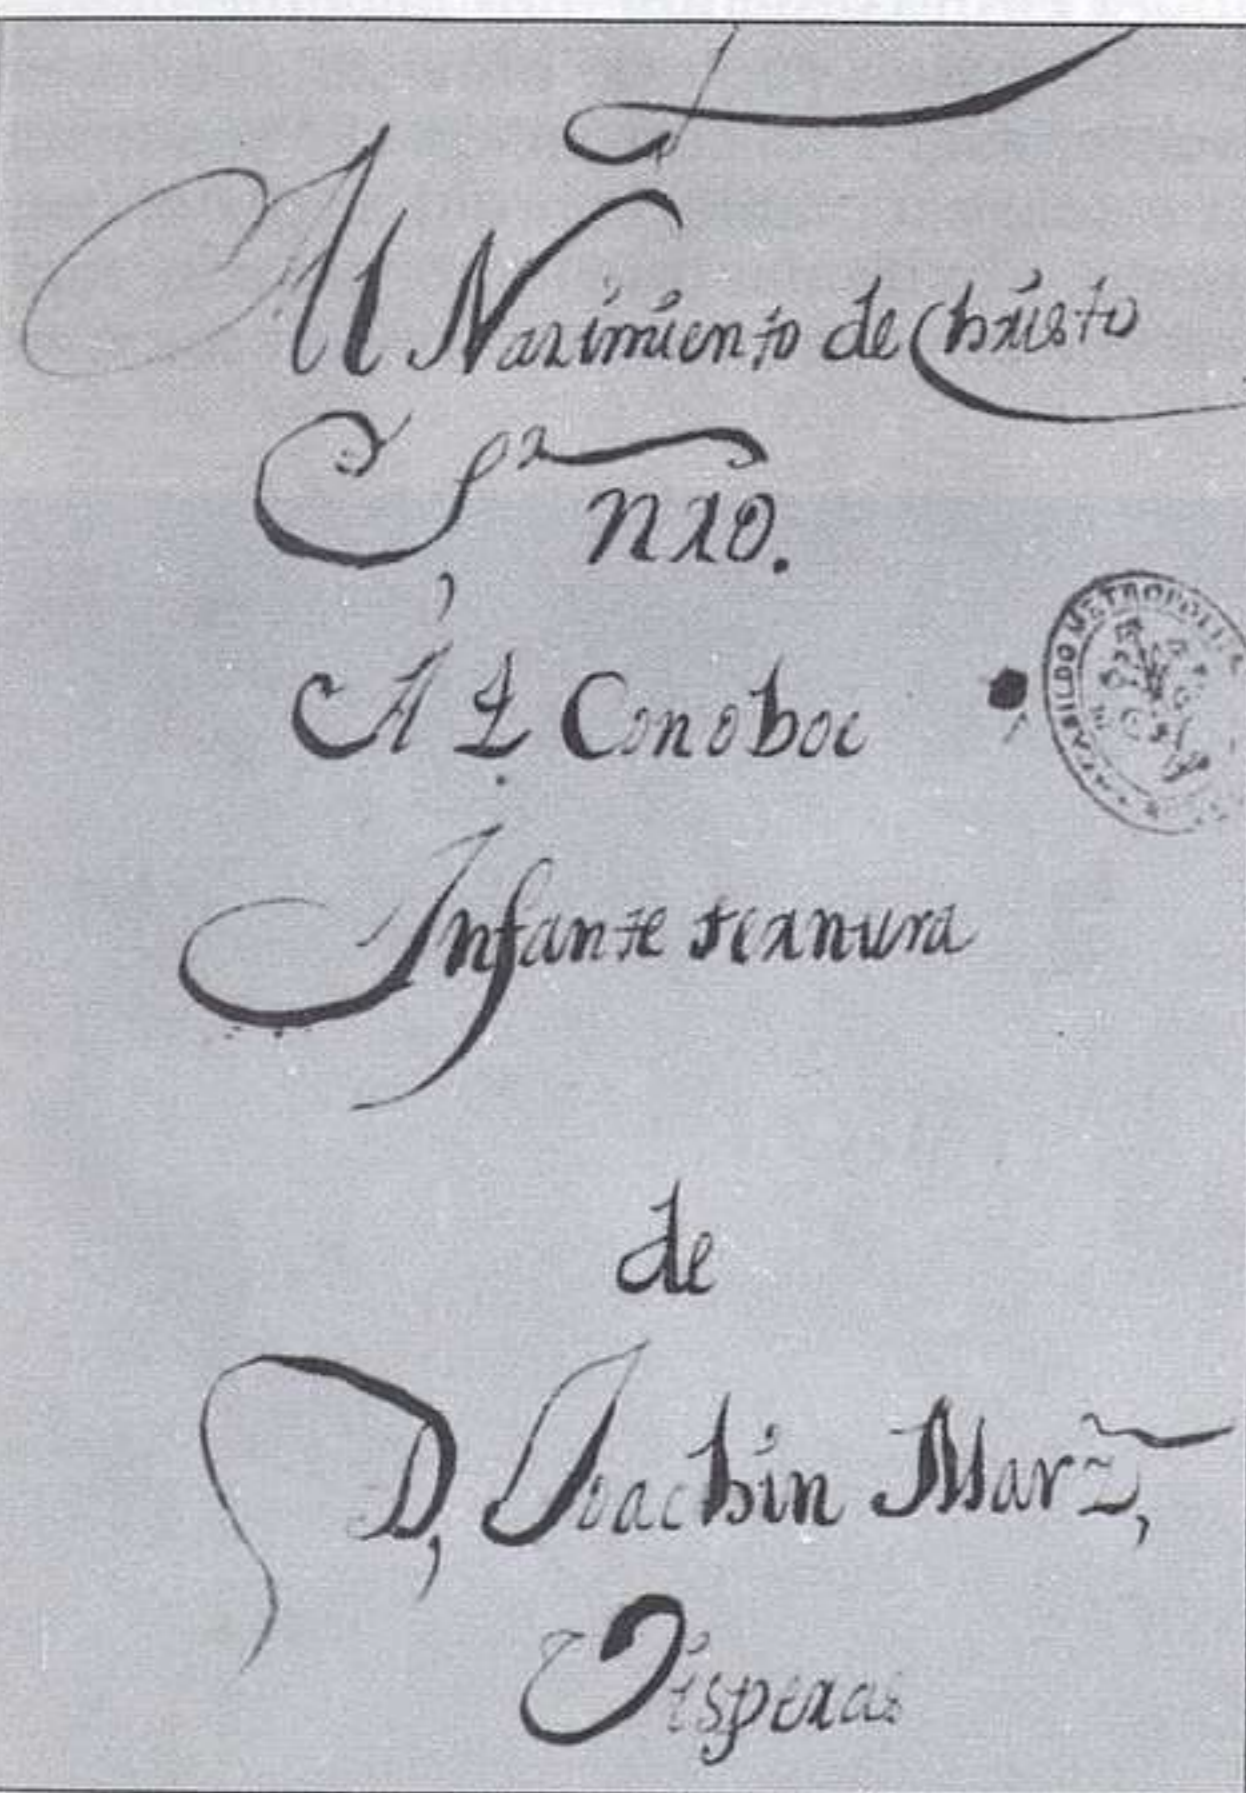 Al Nazimiento de Christo
Sr nro.
A 4 Con oboe
Infante ternura
de
D, Joachin Marz,
Visperas
CABILDO METROPOLI